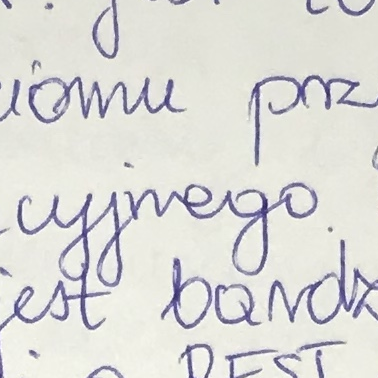 iomu prz
cyjnego.
jest bardz
REST